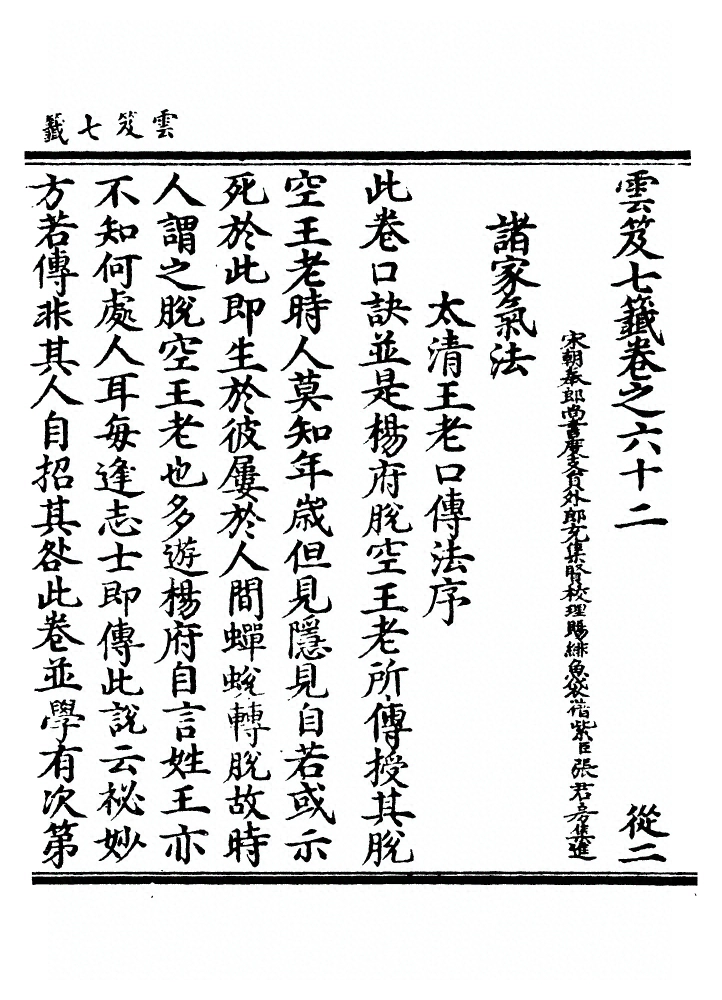 雲笈七籤
雲笈七籤卷之六十二 從二
宋朝奉郎尚書度支員外郎充集賢校理賜緋魚袋借紫臣張君房集進
諸家氣法
太清王老口傳法序
此卷口訣並是楊府脫空王老所傳授其脫
空王老時人莫知年歲但見隱見自若或示
死於此即生於彼屢於人間蟬蛻轉脫故時
人謂之脫空王老也多遊楊府自言姓王亦
不知何處人耳每逢志士即傳此說云祕妙
方若傳非其人自招其咎此卷並學有次第